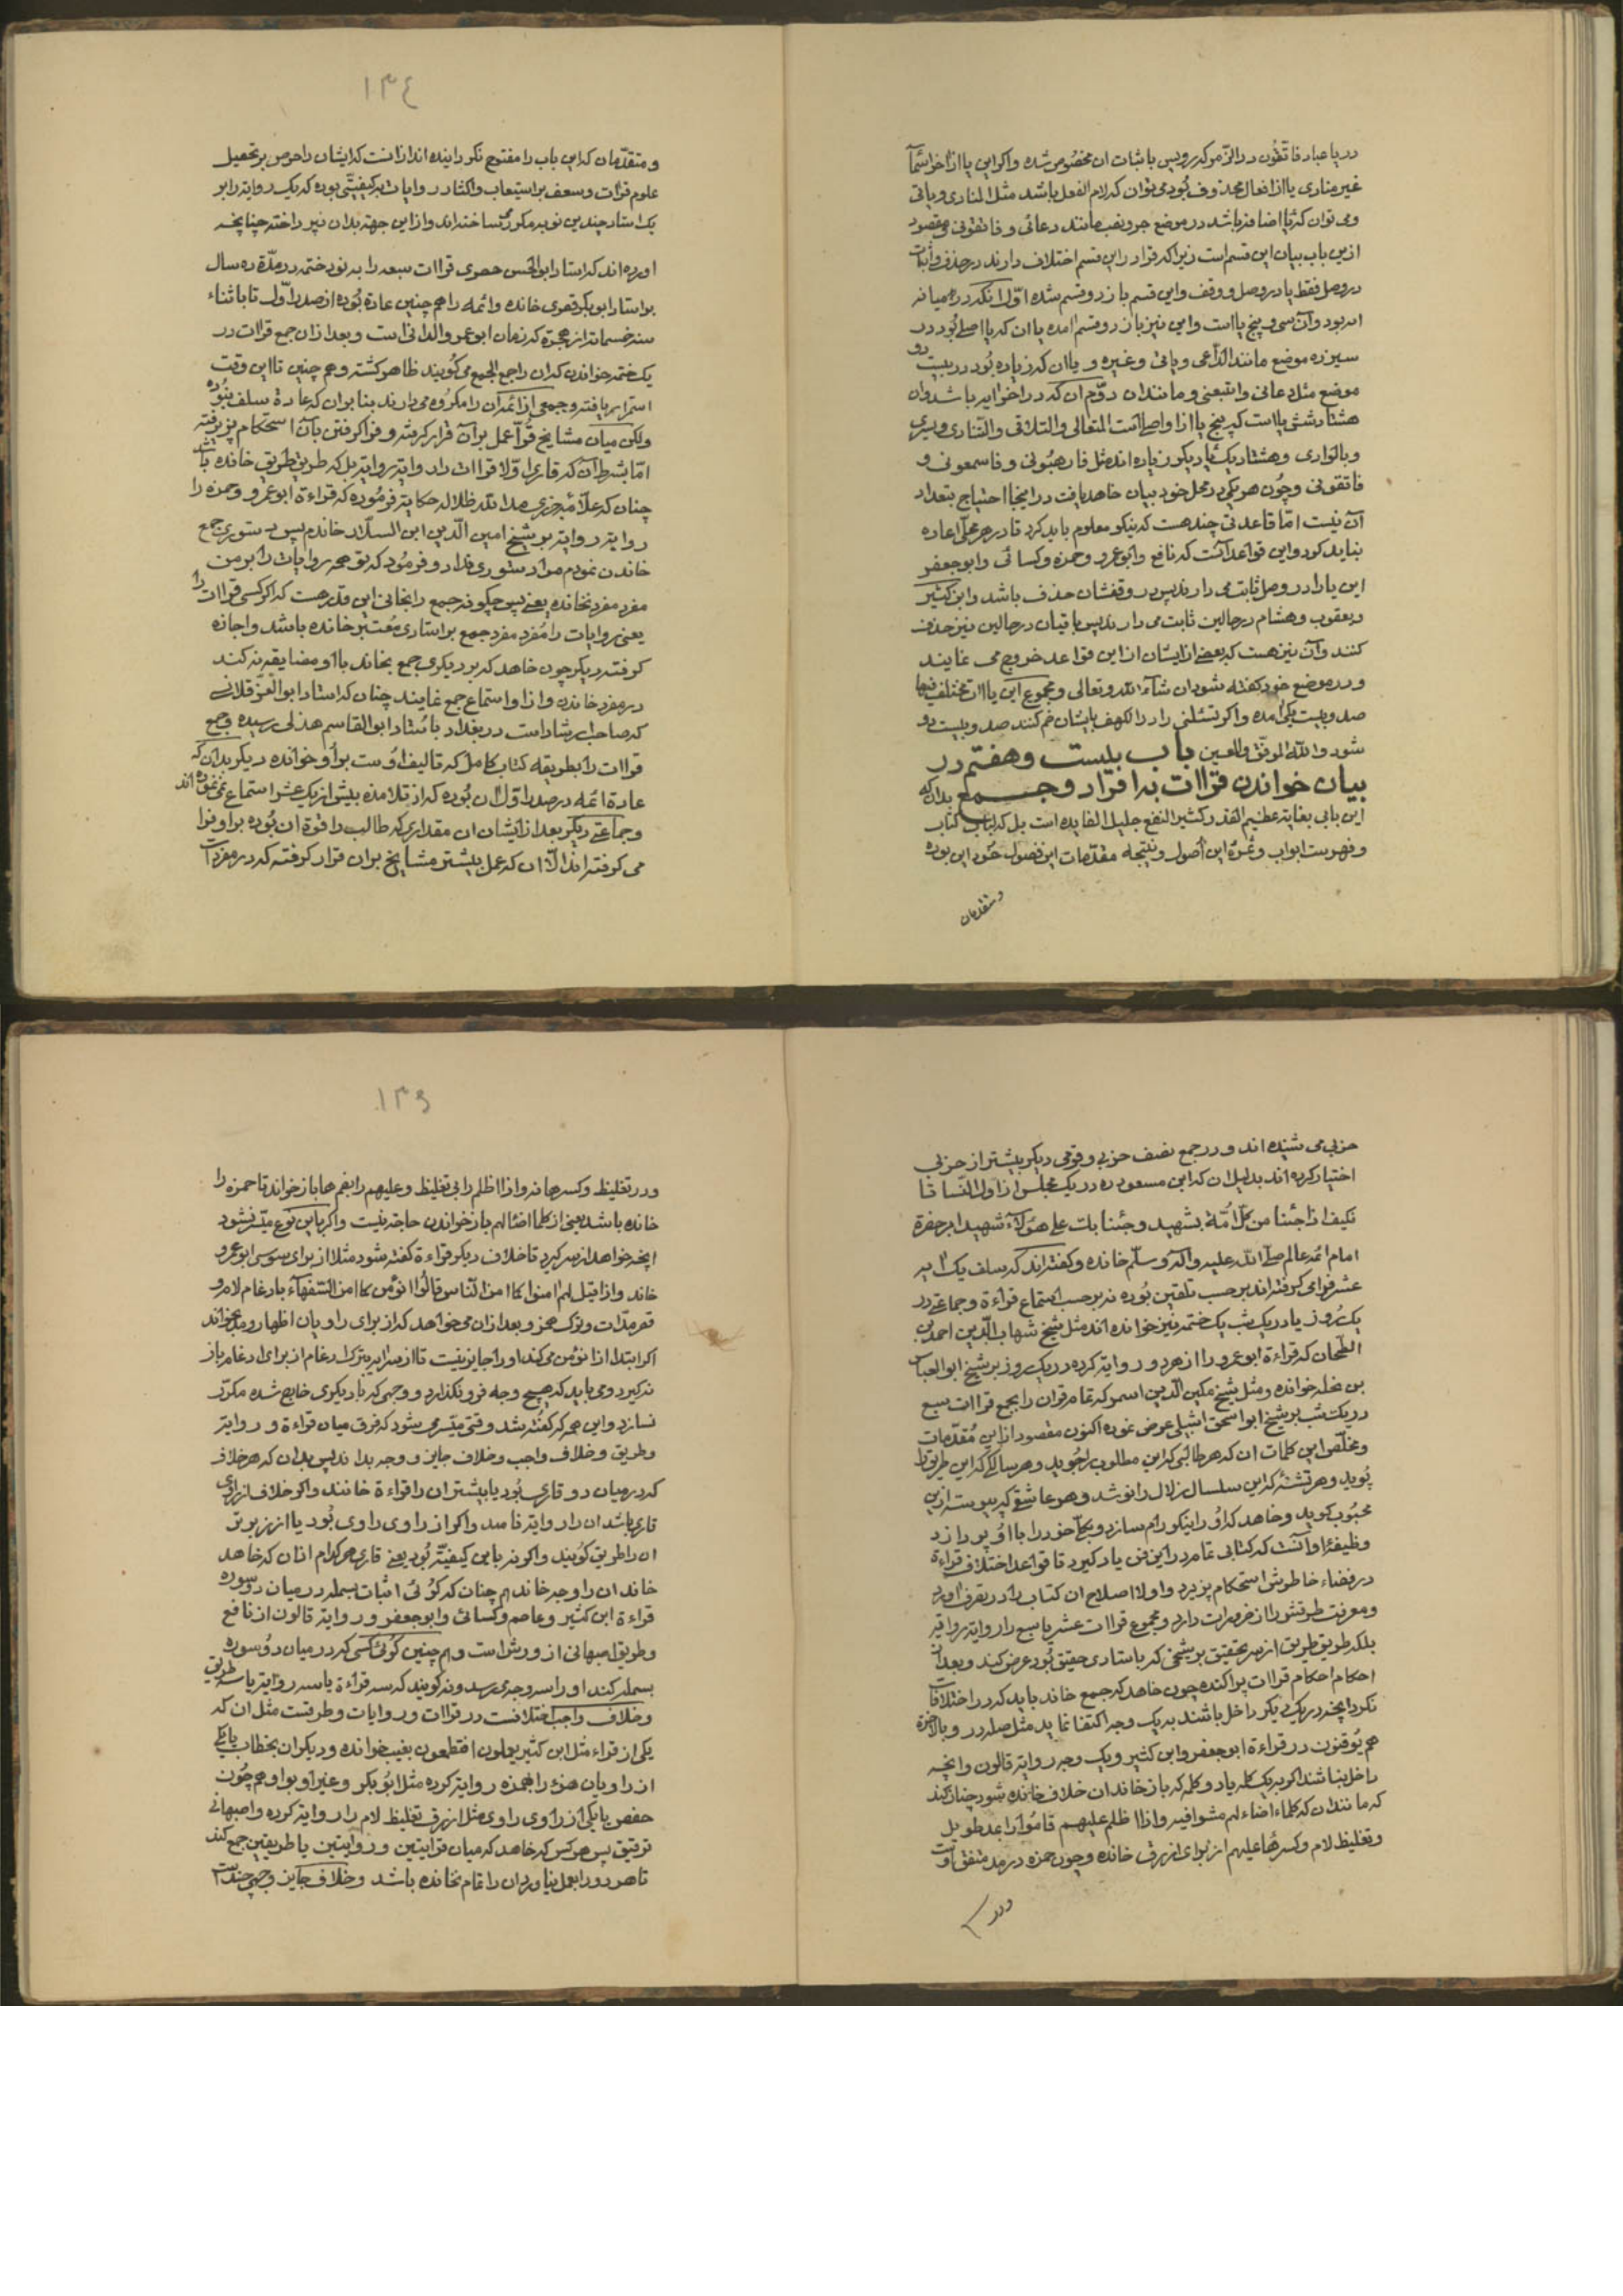 در یا عباد فاتقون در الزمر که رویس باثبات ان مخصُوص شده واکر این یا از اخر اسمآ
غیر منادی یا از افعال محذوف بُود می توان که لام الفعل باشد مثل المنادی ویاتی
ومی توان که یا اضافه باشد در موضع جر ونصب مانند دعائی وفاتقونی ومقصود
ازین باب بیان این قسم است زیرا که قراء در این قسم اختلاف دارند در حذف واثبات
در وصل فقط یا در وصل ووقف واین قسم باز دو قسم شده اوّل انکه در میانه
ایه بود وآن سی وپنج یا است واین نیز باز دو قسم امده یا ان که یا اصلی بُود در
سیزده موضع مانند الدّاعی ویاتی وغیره ویا ان که زیاده بُود در بیست ودو
موضع مثل دعانی واتبعنی ومانند ان دوّم ان که در اخر ایه باشد وان
هشتاد وشش یا است که پنج یا از او اصلی است المتعالی والتلاقی والتنادی ویسری
وبالوادی وهشتاد ویک یاء دیکر زیاده اند مثل فارهبُونی وفاسمعونی و
فاتقونی وچُون هر یکی در محل خود بیان خاهد یافت در اینجا احتیاج بتعداد
آن نیست امّا قاعدتی چند هست که نیکو معلوم باید کرد تا در هر محل اعاده
نباید کرد واین قواعد آنست که نافع وابوعمرو وحمزه وکسائی وابوجعفر
این یا را در وصل ثابت می دارند پس در وقفشان حذف باشد وابن کثیر
ویعقوب وهشام در حالین ثابت می دارند پس باقیان در حالین نیز حذف
کنند وآن نیز هست که بعضی از ایشان از این قواعد خروج می نمایند
ودر موضع خود کفته شود ان شآء الله وتعالی ومجموع این یاات مختلف فیها
صد وبیست یکی امده واکر تسئلنی را در الکهف بایشان ضم کنند صد وبیست ودو
شود والله الموفق والمعین باب بیست وهفتم در
بیان خواندن قراات به افراد وجمع بدان که
این بابی بغایة عظیم القدر وکثیر النفع جلیل الفایده است بل که لباب کتاب
وفهرست ابواب وثمرهٔ این اُصول ونتیجه مقدّمات این فصول خود این بوده
ومتقدمان
١٣٤
ومتقدّمان که این باب را مفتوح نکردانیده اند از انست که ایشان را حرص بر تحصیل
علوم قراات وسعف بر استیعاب واکثار روایات بکیفیتی بوده که یک روایة را بر
یک استاد چندین نوبه مکرر می ساخته اند واز این جهة بدان نپرداخته چنانچه
اورده اند که استاد ابوالحسن حصری قراات سبعه را به نود ختمه در مدّة ده سال
بر استاد ابوبکر قصری خانده وائمه را هم چنین عادة بُوده از صدر اوّل تا باثناء
سنه خمسمائة از هجرة که زمان ابوعمرو الدانی است وبعد از ان جمع قراات در
یک ختمه خواندن که ان را جمع الجمع می کُویند ظاهر کشته وهم چنین تا این وقت
استمرار یافته وجمعی از ائمه آن را مکرُوه می دارند بنا بر ان که عادة سلف نبُوده
ولکن میان مشایخ قُرّا عمل بر آن قرار کرفته وفرا کرفتن بآن استحکام پزیرفته
امّا بشرط آن که قاری اوّلا قراات را روایة بروایة بل که طریق بطریق خانده باشد
چنان که علّامه جزری مد الله ظلاله حکایة فرمُوده که قراءة ابوعمرو وحمزه را
روایة روایة بر شیخ امین الّدین ابن السلّار خاندم پس دستوری جمع
خاندن نمودم مرا دستوری نداد وفرمُود که تو همه روایات را بر من
مفرد مفرد نخانده یعنی پس چکونه جمع را بخانی این قدر هست که اکر کسی قراات را
یعنی روایات را مُفرد مفرد جمع بر استادی مُعتبر خانده باشد واجازه
کرفته دیکر چون خاهد که بر دیکری جمع بخاند با او مضایقه نه کند
در مفرد خاندن واز او استماع جمع نمایند چنان که استاد ابوالعزّ قلانسی
که صاحب ارشاد است در بغداد باُستاد ابوالقاسم هذلی رسیده وجمع
قراات را بطریقه کتاب کامل که تالیف اوُست بر اُو خوانده دیکر بدان که
عادة ائمه در صدر اوّل ان بُوده که از تلامذه بیش از یک عشر استماع نمی نموده اند
وجماعتی دیکر بعد از ایشان ان مقداری که طالب را قوة ان بُوده بر او فرا
می کرفته اند الّا ان که عمل بیشتر مشایخ بر ان قرار کرفته که در مفردات
حزبی می شنیده اند ودر جمع نصف حزبی وقومی دیکر بیشتر از حزبی
اختیار کرده اند بدلیل ان که ابن مسعود ده در یک مجلس از اول النّسا تا
فکیف اذا جئنا من کلّ امّة بشهید وجئنا بک علی هؤلآء شهیدا بر حضرة
امام ائمه عالم صلی الله علیه واله وسلّم خانده وکفته اند که سلف یک ایه
عشر فرا می کرفته اند بر حسب تلقین بُوده نه بر حسب استماع قراءة وجماعتی در
یک رُوز یا در یک شب یک ختمه نیز خوانده اند مثل شیخ شهاب الّدین احمد بن
الطحان که قراءة ابوعمرو را از هر دو روایة کرده در یک روز بر شیخ ابوالعباس
بن نحله خوانده ومثل شیخ مکین الّدین اسمر که تمام قران را بجمع قراات سبع
در یک شب بر شیخ ابواسحق اشبیلی عرض نموده اکنون مقصود از این مُقدّمات
ومخلّص این کلمات ان که هر طالبی که این مطلوب را جُوید وهر سالکی که این طریق را
پُوید وهر تشنهٔ که این سلسال زلال را نوشد وهر عاشقی که پیوسته ازین
محبُوب کوید وخاهد که اوُ را نیکو رام سازد وبکلّ خود را با اوُ پردازد
وظیفهٔ او آنست که کتابی تمام در این فن یاد کیرد تا قواعد اختلاف قراءة
در فضاء خاطرش استحکام پزیرد واولا اصلاح ان کتاب را در تصرف اورد
ومعرفت طرقش را از ضرورات دارد ومجموع قراات عشر یا سبع را روایة بروایة
بلکه طریق بطریق از سر تحقیق بر شیخی که باستادی حقیق بُود عرض کند وبعد از
احکام احکام قراات پراکنده چون خاهد که جمع خاند باید که در اختلافات
نکرد انچه در یک دیکر داخل باشند به یک وجه اکتفا نماید مثل صله در وبالاخرة
هم یُوقنون در قراءة ابوجعفر وابن کثیر ویک وجه روایة قالون وانچه
داخل نباشند اکر به یک کلمه یا دو کلمه که باز خاند ان خلاف خانده شود چنان کند
که مانند ان که کلماء اضاء لهم مشوا فیه واذا اظلم علیهم قامُوا را بمد طویل
وتغلیظ لام وکسر هاء علیهم از برای ازرق خانده وچون حمزه در مد متفق اوست
ودر
١٣٥
ودر تغلیظ وکسرها نه واذا اظلم را بی تغلیظ وعلیهم را بضم ها باز خواند تا حمزه را
خانده باشد یعنی از کلما اضا لهم باز خواندن حاجة نیست واکر باین نوع میسّر نشود
انچه خواهد از سر کیرد تا خلاف دیکر قراءة کفته شود مثلا از برای سوسی ابوعمرو
خاند واذا قیل لهم امنوا کما امن الناس قالُوا انؤمن کما امن السّفهآء بادغام لام و
قصر مدّات وترک همز وبعد از ان می خواهد که از برای راویان اظهار ومد بخواند
اکر ابتدا از انؤمن می کند او را جایز نیست تا از سر ایه بترک ادغام از برای ادغام باز
نه کیرد ومی باید که هیچ وجه فرو نکذارد ووجهی که با دیکری خارج شده مکرّر
نسازد واین همه که کفته شد وقتی میسّر می شود که فرق میان قراءة وروایة
وطریق وخلاف واجب وخلاف جایز ووجه بداند پس بدان که هر خلاف
که در میان دو قاری بُود یا بیشتر ان را قراءة خانند واکر خلاف از راوی
قاری باشد ان را روایة نامند واکر از راوی راوی بُود یا از زیرتر
ان را طریق کوُیند واکر نه باین کیفیّة بُود یعنی قاری هر کدام از ان که خاهد
خاند ان را وجه خاند هم چنان که کوُئی اثبات بسمله در میان دو سوره
قراءة ابن کثیر وعاصم وکسائی وابوجعفر وروایة قالون از نافع
وطریق اصبهانی از ورش است وهم چنین کوُئی کسی که در میان دوُ سوره
بسمله کند او را سه وجه می رسد ونه کویند که سه قراءة یا سه روایة یا سه طریق
وخلاف واجب اختلافست در قراات وروایات وطرقست مثل ان که
یکی از قراء مثل ابن کثیر یعلمون افتطمعون بغیب خوانده ودیکران بخطاب یا یکی
از راویان هزء را بهمزه روایة کرده مثل ابُوبکر وغیر او بواو هم چوُن
حفص یا یکی از راوی راوی مثل ازرق تغلیظ لام را روایة کرده واصبهانی
ترقیق پس هر کس که خاهد که میان قرایتین وروایتین یا طریقین جمع کند
تا هر دو را بعمل نیاورد ان را تمام نخانده باشد وخلاف جایز وجهی چندست